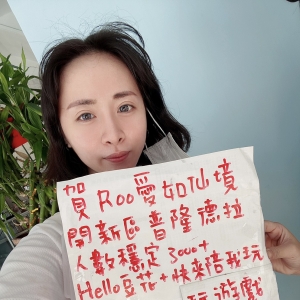 賀Roo愛如仙境
開新區普隆德拉
人數穩定3000+
Hello豆花+快來陪我玩
玩遊戲